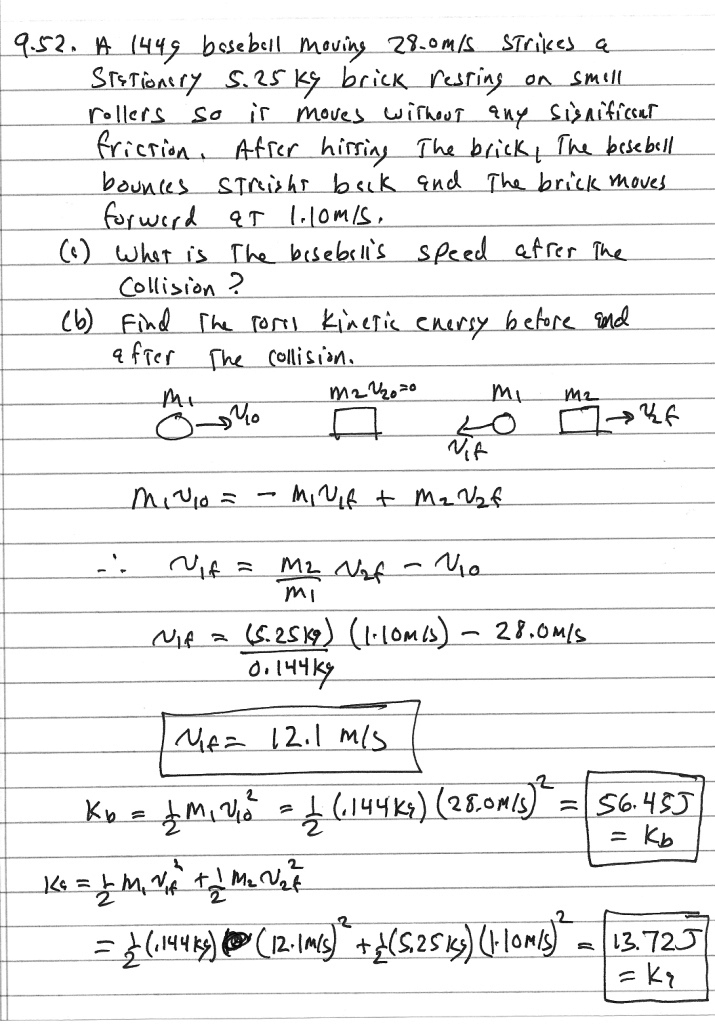 9.52. A 144g baseball moving 28.0m/s strikes a
stationary 5.25 kg brick resting on small
rollers so it moves without any significant
friction. After hitting the brick, the baseball
bounces straight back and the brick moves
forward at 1.10m/s.
(a) What is the baseball's speed after the
collision?
(b) Find the total kinetic energy before and
after the collision.
m₁ →v₁₀ m₂ v₂₀=0 m₁ v₁f m₂ →v₂f
m₁v₁₀ = - m₁v₁f + m₂v₂f
∴ v₁f = m₂/m₁ v₂f - v₁₀
v₁f = (5.25kg)/0.144kg (1.10m/s) - 28.0m/s
v₁f = 12.1 m/s
Kb = 1/2 m₁v₁₀² = 1/2 (.144kg)(28.0m/s)² = 56.45J = Kb
Ka = 1/2 m₁v₁f² + 1/2 m₂v₂f²
= 1/2 (.144kg) (12.1m/s)² + 1/2 (5.25kg)(1.10m/s)² = 13.72J = Ka